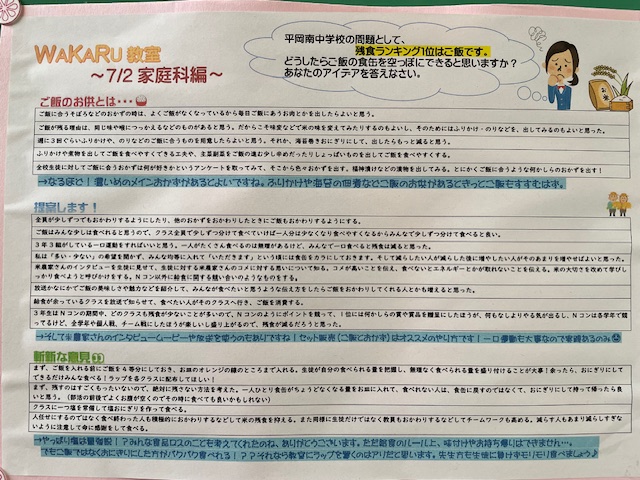 WAKARU 教室
～7/2 家庭科編～
平岡南中学校の問題として、
残食ランキング1位はご飯です。
どうしたらご飯の食缶を空っぽにできると思いますか？
あなたのアイデアを答えなさい。
ご飯のお供とは・・・
ご飯に合うそぼろなどのおかずの時は、よくご飯がなくなっているから毎日ご飯にあうお肉とかを出したらよいと思う。
ご飯が残る理由は、同じ味や喉につっかえるなどのものがあると思う。だからこそ味変などで米の味を変えてみたりするのもよいし、そのためにはふりかけ・のりなどを、出してみるのもよいと思った。
週に3回ぐらいふりかけや、のりなどのご飯に合うものを用意したらよいと思う。それか、海苔巻きおにぎりにして、出したらもっと減ると思う。
ふりかけや漬物を出してご飯を食べやすくできる工夫や、主菜副菜をご飯の進む少し辛めだったりしょっぱいものを出してご飯を食べやすくする。
全校生徒に対してご飯に合うおかずは何が好きかというアンケートを取ってみて、そこから色々おかずを出す。福神漬けなどの漬物を出してみる。とにかくご飯に合うような何かしらのおかずを出す！
→なるほど！濃いめのメインおかずがあるとよいですね。ふりかけや海苔の佃煮などご飯のお供があるときっとご飯もすすむはず。
提案します！
全員が少しずつでもおかわりするようにしたり、他のおかずをおかわりしたときにご飯もおかわりするようにする。
ご飯はみんな少しは食べれると思うので、クラス全員で少しずつ分けて食べていけば一人分は少なくなり食べやすくなるからみんなで少しずつ分けて食べると良い。
3年3組がしている一口運動をすればいいと思う。一人がたくさん食べるのは無理があるけど、みんなで一口食べると残食は減ると思った。
私は「多い・少ない」の希望を聞かず、みんな均等に入れて「いただきます」という頃には食缶をカラにしておきます。そして減らしたい人が減らした後に増やしたい人がそのあまりを増やせばよいと思った。
米農家さんのインタビューを生徒に見せて、生徒に対する米農家さんのコメに対する思いについて知る。コメが高いことを伝え、食べないとエネルギーとかが取れないことを伝える。米の大切さを改めて学びしっかり食べようと呼びかけをする。Nコン以外に給食に関する競い合いのようなものをする。
放送かなにかでご飯の美味しさや魅力などを紹介して、みんなが食べたいと思うような伝え方をしたらご飯をおかわりしてくれる人とかも増えると思った。
給食が余っているクラスを放送で知らせて、食べたい人がそのクラスへ行き、ご飯を消費する。
3年生はNコンの期間中、どのクラスも残食が少ないことが多いので、Nコンのようにポイントを競って、1位には何かしらの賞や賞品を贈呈にしたほうが、何もなしよりやる気が出るし、Nコンは各学年で競ってるけど、全学年や個人戦、チーム戦にしたほうが楽しいし盛り上がるので、残食が減るだろうと思った。
→そして米農家さんのインタビュームービーや放送を使うのもありですね！セット販売（ご飯とおかず）はオススメのやり方です！一口運動も大事なので実績あるのみ
斬新な意見
まず、ご飯を入れる前にご飯を4等分にしておき、お皿のオレンジの線のところまで入れる。生徒が自分の食べられる量を把握し、無理なく食べられる量を盛り付けることが大事！余ったら、おにぎりにしてできるだけみんな食べる！ラップを各クラスに配布してほしい！
まず、残食のはすごくもったいないので、絶対に残さない方法を考えた。一人ひとり食缶がちょうどなくなる量をお皿に入れて、食べれない人は、食缶に戻すのではなくて、おにぎりにして持って帰ったら良いと思う。（部活の前後でよくお腹が空くのでその時に食べても良いかもしれない）
クラスに一つ塩を常備して塩おにぎりを作って食べる。
人任せにするのではなく食べ終わった人も積極的におかわりするなどして米の残食を抑える。また同様に生徒だけではなく教員もおかわりするなどしてチームワークも高める。減らす人もあまり減らしすぎないように注意して命に感謝をして食べる。
→やっぱり塩は最強説！？みんな食品ロスのことも考えてくれたのね、ありがとうございます。ただ給食のルール上、味付けやお持ち帰りはできません…。
でもご飯ではなくおにぎりにした方がパクパク食べれる！？？それなら教室にラップを置くのはアリだと思います。先生方も生徒に負けずモリモリ食べましょう♪